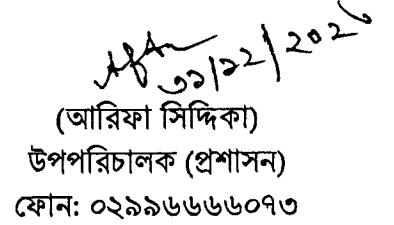 ৩১/১২/২০২
(আরিফা সিদ্দিকা)
উপপরিচালক (প্রশাসন)
ফোন: ০২৯৯৬৬৬৬০৭৩